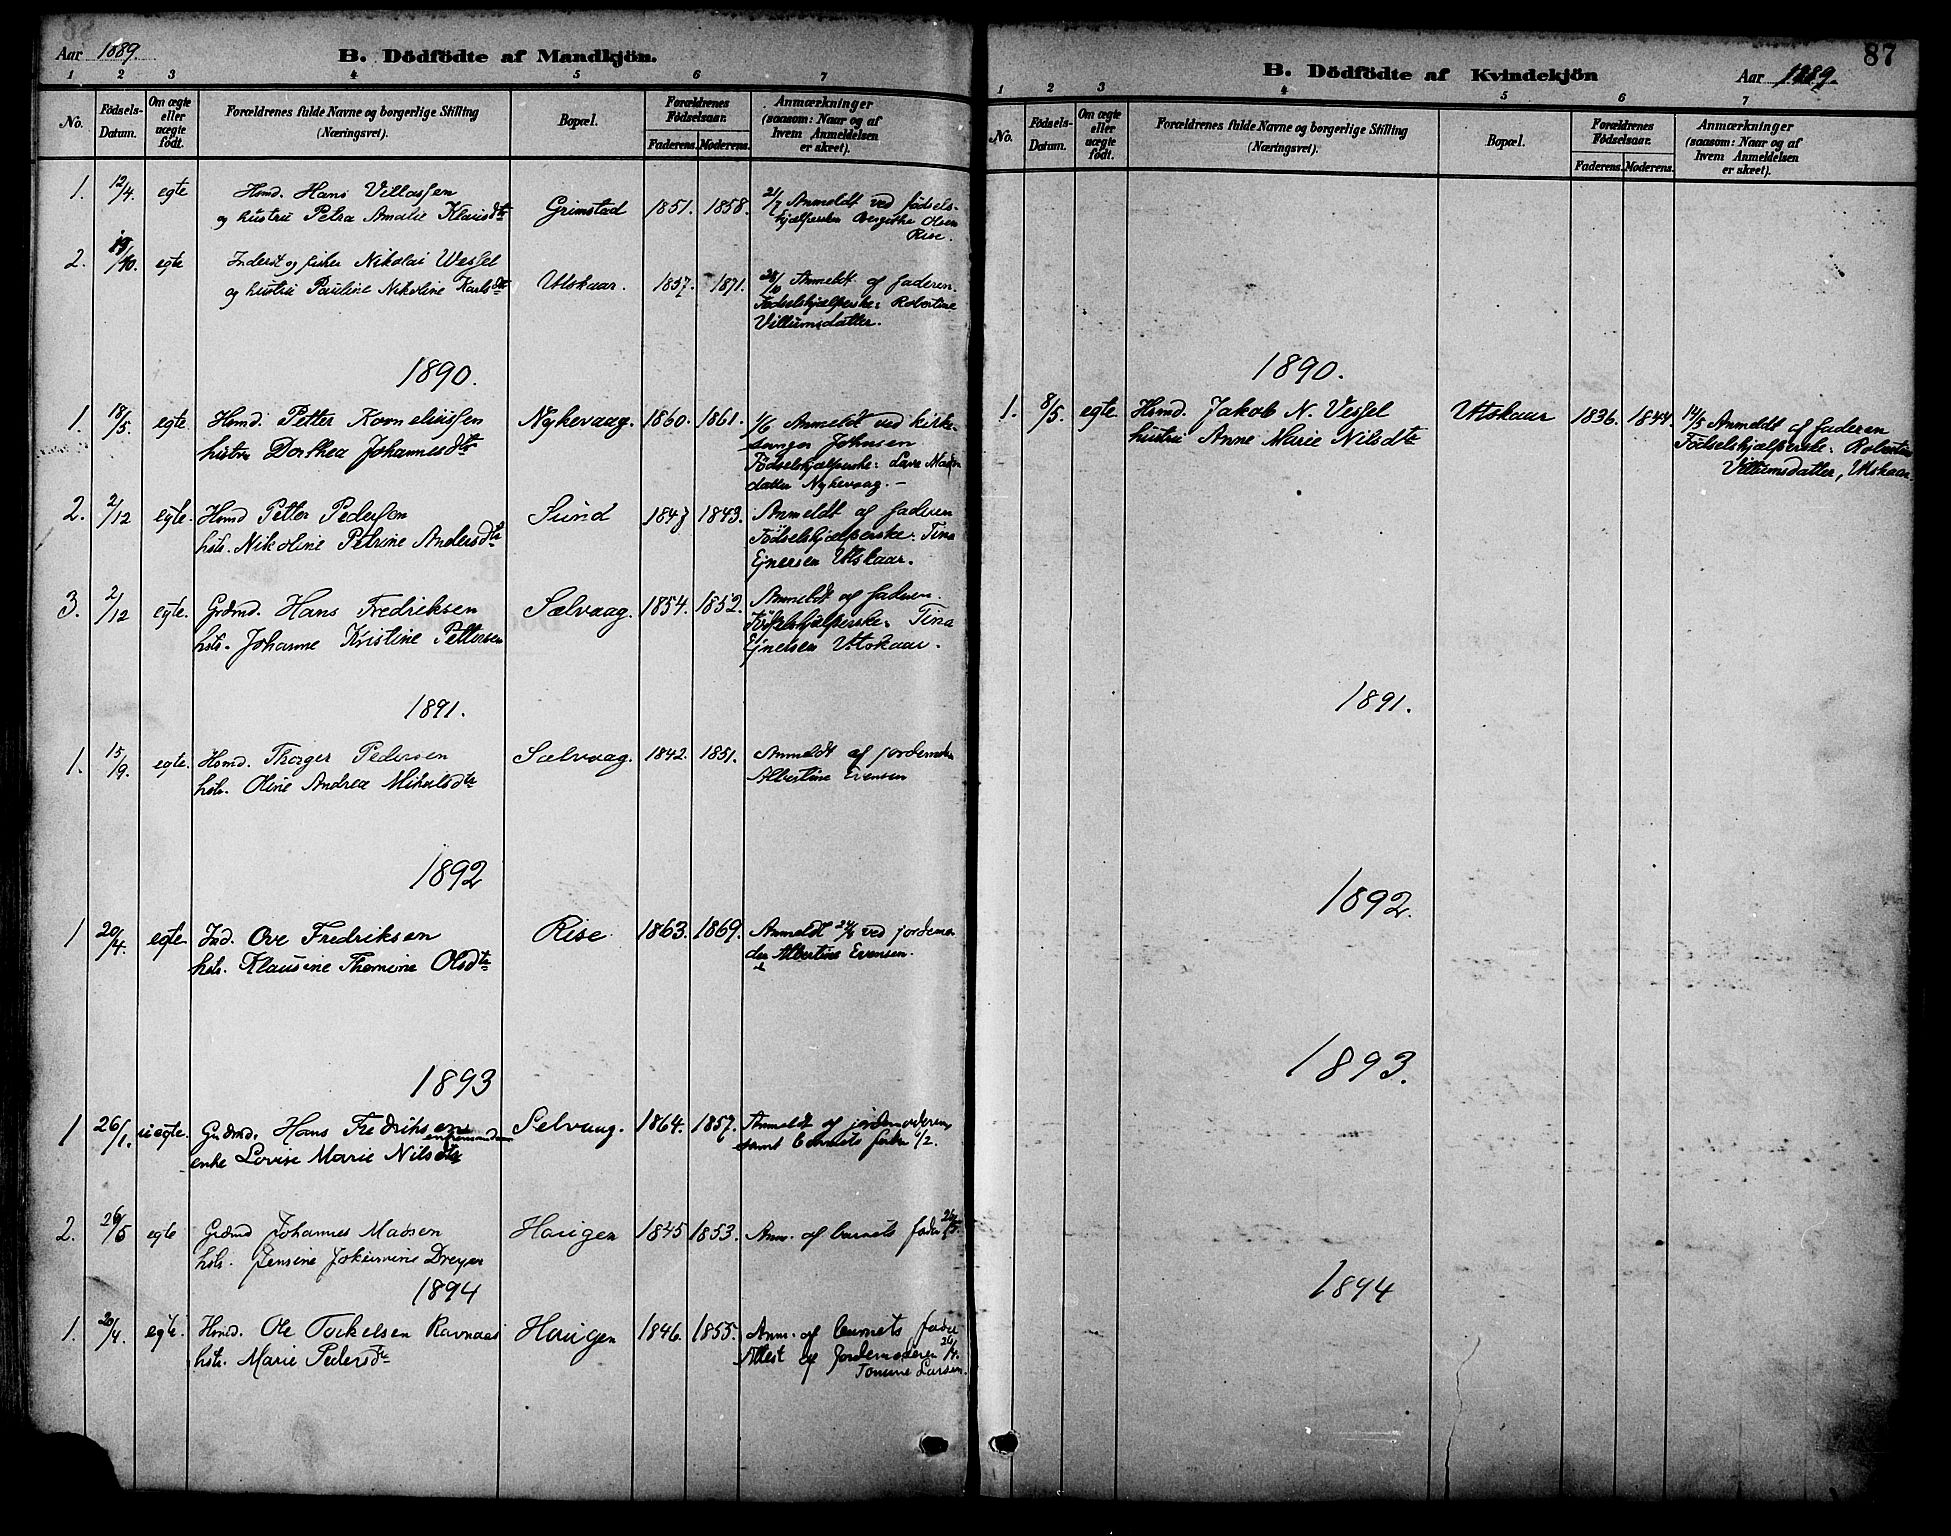 Aar 1889.
B. Dödfödte af Mandkjön.
1 2 3 4 5 6 7
No. Födsels-Datum. Om ægte eller uægte födt. Forældrenes fulde Navne og borgerlige Stilling (Næringsvei). Bopæl. Forældrenes Fødselsaar. Faderens. Moderens. Anmærkninger (saasom: Naar og af hvem Anmeldelsen er skeet).
1. 12/4. egte Hsmd. Hans Villassen Grimstad 1851. 1858. 21/7 Anmeldt ved fødsels-
og hustru Petra Amalie Klausdtr hjælpersken Olsen
Rise.
2. 19/10. egte Inderst og fisker Nikolai Wessel Utskaar. 1857. 1871. 28/10 Anmeldt af faderen.
og hustru Pauline Nikoline Karlsdtr Fødselshjælperske: Robertine
Villumsdatter.
1890.
1. 18/5. egte Hsmd. Petter Korneliussen Nykevaag. 1860. 1861. 1/6 Anmeldt ved kirke-
hustru Dorthea Johannesdtr sanger Johnsen
Fødselshjælperske:
datter Nykevaag. –
2. 2/12 egte. Hsmd Petter Pedersen Sund 1843. Anmeldt af faderen
hstr. Nikoline Petrine Andersdtr Fødselshjælperske: Tina
Ejnersen Utskaar.
3. 2/12 egte. Grdmd. Hans Fredriksen Sælvaag. 1854. 1852. Anmeldt af faderen.
hstr. Johanne Kristine Pettersen Fødselshjælperske: Tina
Ejnersen Utskaar.
1891.
1. 15/9. egte. Hsmd. Thorger Pedersen Sælvaag. 1842. 1851. Anmeldt af jordemoder
hstr. Oline Andrea Mikalsdtr Albertine Evensen
1892
1 20/4. egte Ind. Ove Fredriksen Rise 1863. 1869. Anmeldt 24/4 ved jordemo-
hstr. Klausine Thomine Olsdtr der Albertine Evensen.
1893
1 26/1. uegte. Grdmd. Hans Fredriksen enkemand Selvaag. 1864. 1857. Anmeldt af jordemoderen
enke Lovise Marie Nilsdtr samt barnets fader /2
2. 26/5 egte Grdmd Johannes Madsen Haugen 1845 1853. Anm. af barnets fader 26/5.
hstr. Jensine Jokumine Dreyer
1894
1. 20/4. egte. Hsmd. Ole Torkelsen Ravnaas Haugen 1846. 1855. Anm. af barnets fader
hstr. Marie Pedersdtr Attest af Jordemoderen 26/4.
Tomine Larsen.
87
B. Dödfödte af Kvindekjön
Aar 1889.
1 2 3 4 5 6 7
No. Födsels-Datum. Om ægte eller uægte födt. Forældrenes fulde Navne og borgerlige Stilling (Næringsvei). Bopæl. Forældrenes Fødselsaar. Faderens. Moderens. Anmærkninger (saasom: Naar og af hvem Anmeldelsen er skeet).
1890.
1. 8/5. egte. Hsmd. Jakob N. Vessel Utskaar 1836. 1844. 14/5 Anmeldt af faderen
hustru Anne Marie Nilsdtr Fødselshjælperske: Robertine
Villumsdatter, Utskaar.
1891.
1892.
1893.
1894